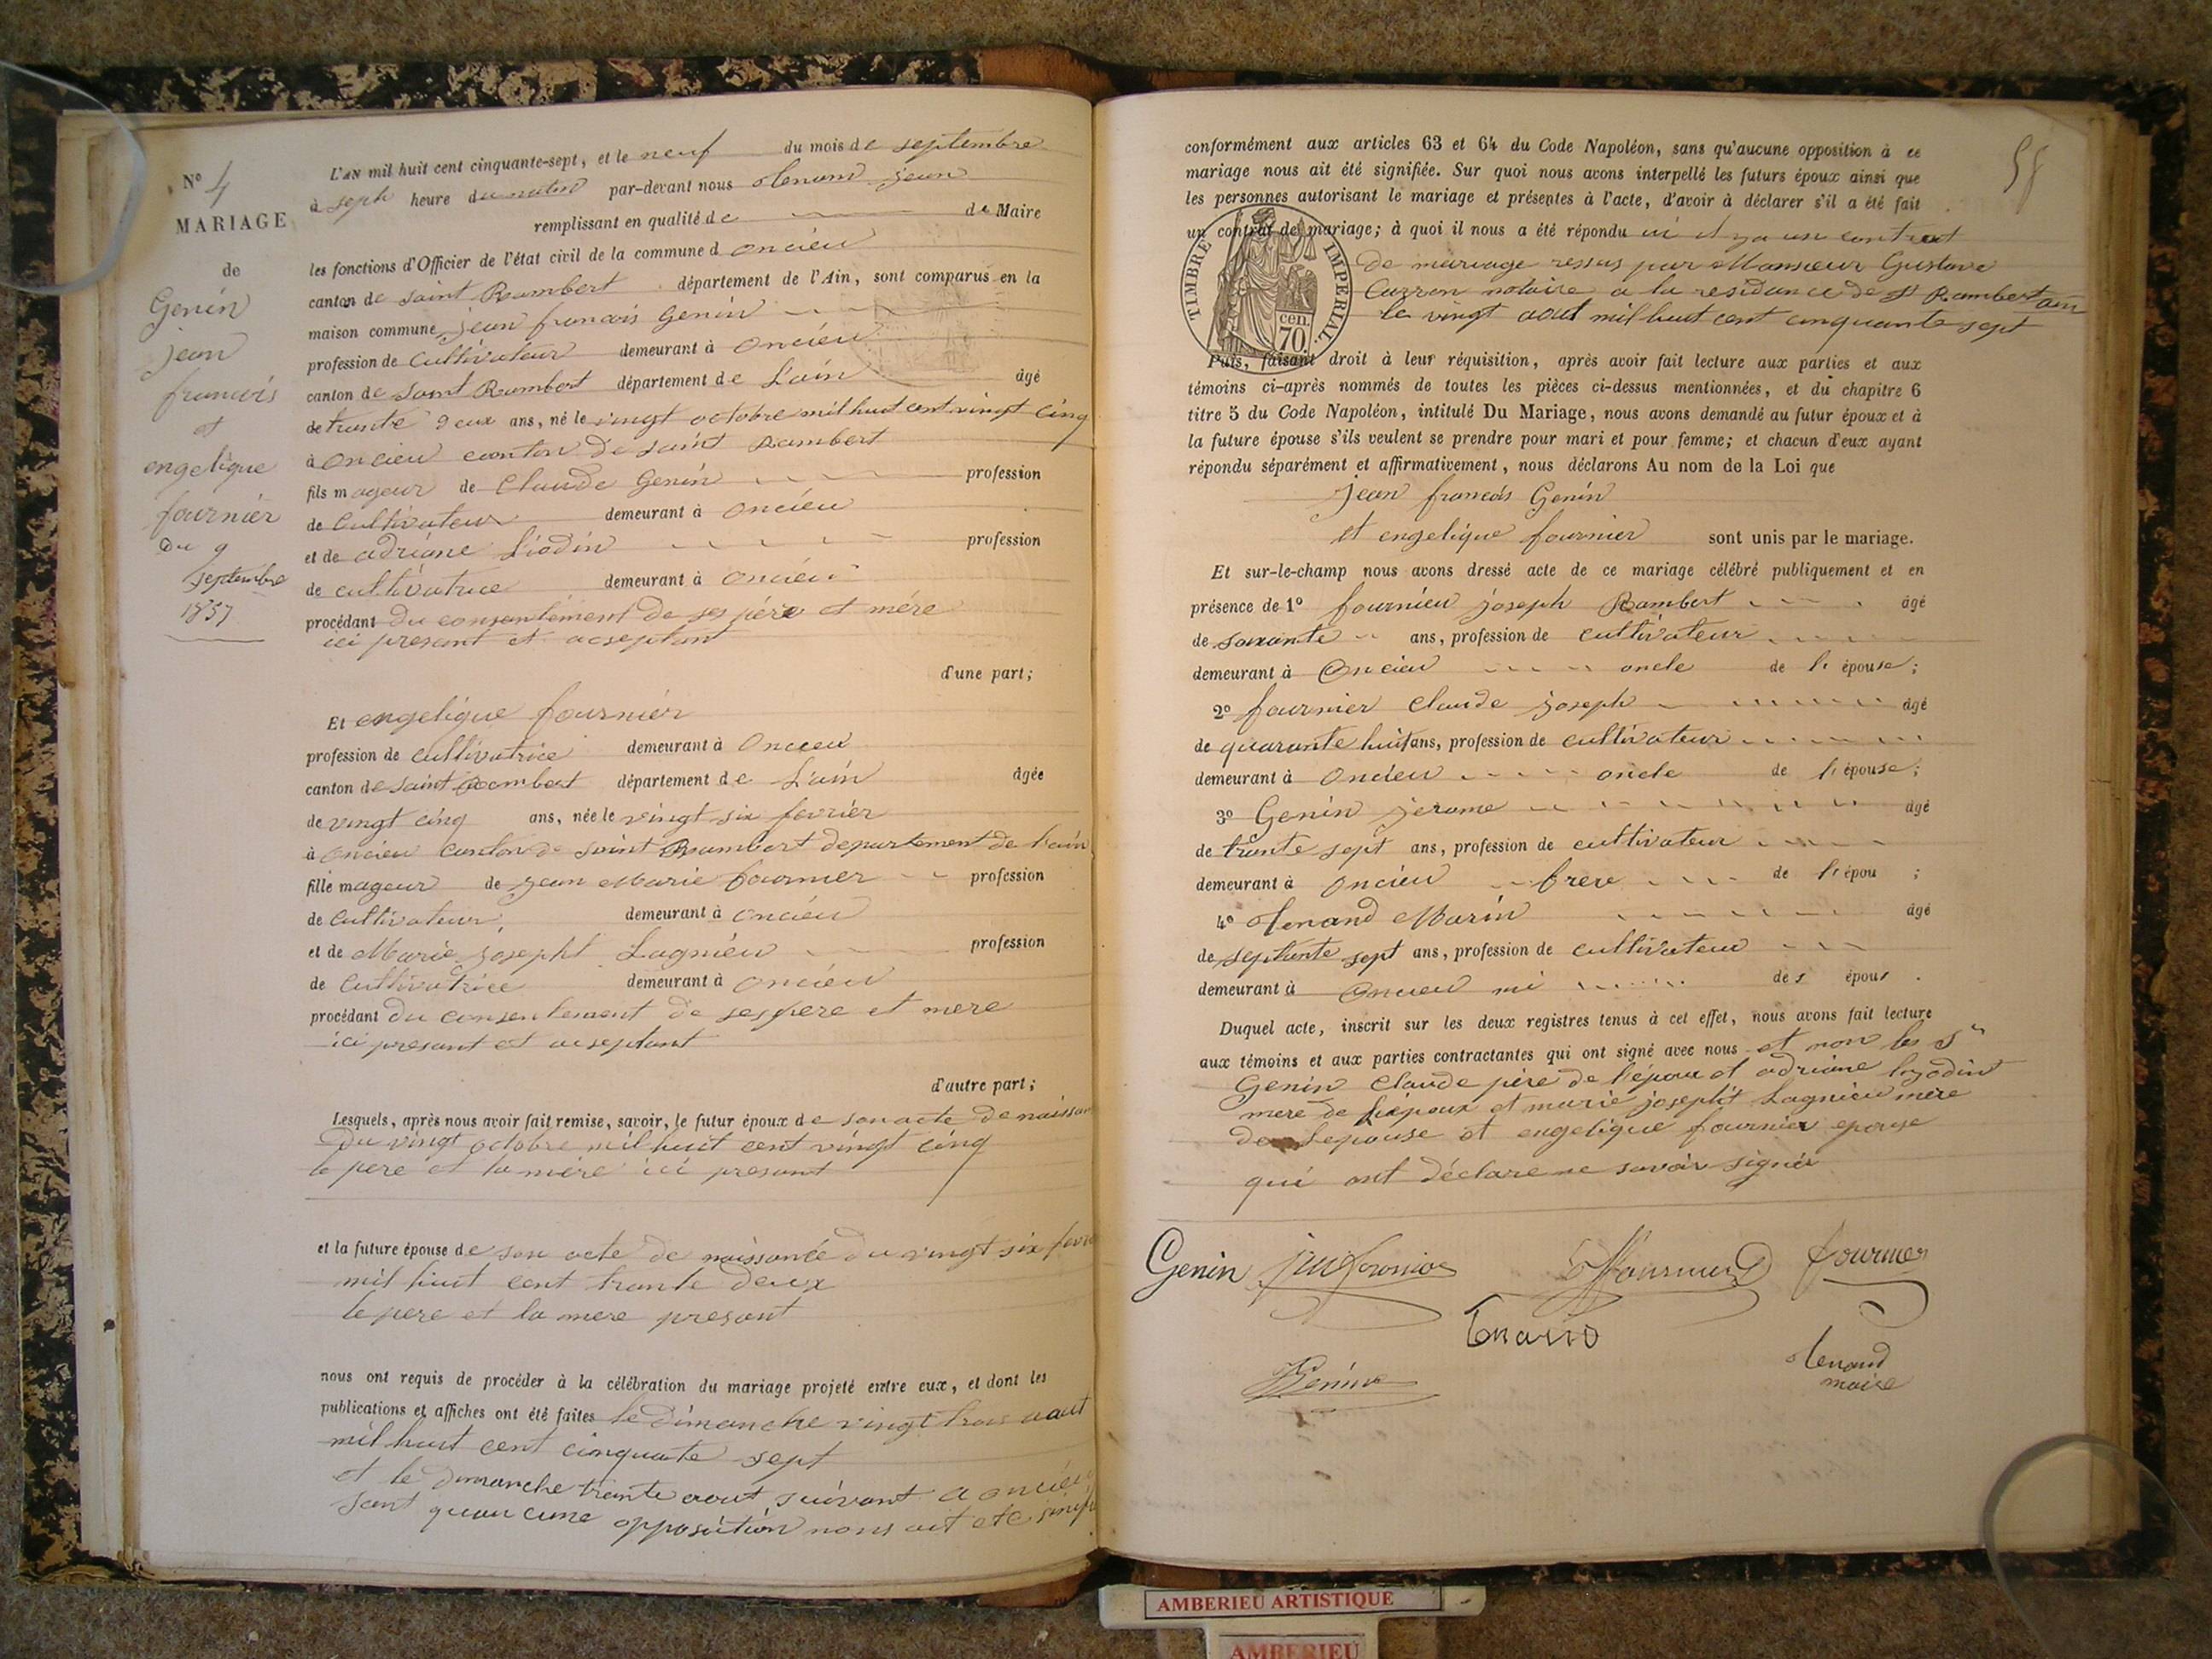 N° 4
MARIAGE
de
Genin
jean
francois
et
engelique
fournier
du 9
septembre
1857
L'AN mil huit cent cinquante-sept, et le neuf du mois de septembre
à seph heure du matin par-devant nous jean
remplissant en qualité de de Maire
les fonctions d'Officier de l'état civil de la commune d oncieu
canton de saint Rambert département de l'Ain, sont comparus en la
maison commune jean francois Genin
profession de Cultivateur demeurant à oncieu
canton de saint Rambert département de L'ain âgé
de trente deux ans, né le vingt octobre mil huit cent vingt cinq
à oncieu canton de saint Rambert
fils mageur de Claude Genin profession
de Cultivateur demeurant à oncieu
et de adriane Liodin profession
de cultivatrice demeurant à oncieu
procédant du consentement de ses père et mére
ici presant et acseptant
d'une part;
Et engelique fournier
profession de cultivatrice demeurant à oncieu
canton de saint Rambert département de L'ain âgée
de vingt cinq ans, née le vingt six fevrier
à oncieu canton de saint Rambert departement de l'ain
fille mageur de jean Marie fournier profession
de Cultivateur demeurant à oncieu
et de Marie josepht Lagnieu profession
de Cultivatrice demeurant à oncieu
procédant du consentement de ses pere et mere
ici presant et acseptant
d'autre part;
Lesquels, après nous avoir fait remise, savoir, le futur époux de son acte de naissan
du vingt octobre mil huit cent vingt cinq
le pere et la mere ici presant
et la future épouse de son acte de naissance du vingt six fevr
mil huit cent trante deux
le pere et la mere presant
nous ont requis de procéder à la célébration du mariage projeté entre eux, et dont les
publications et affiches ont été faites le dimanche vingt trois aout
mil huit cent cinquante sept
et le dimanche trente aout suivant a oncieu
sant quaucune opposition nous ait ete
58
conformément aux articles 63 et 64 du Code Napoléon, sans qu'aucune opposition à ce
mariage nous ait été signifiée. Sur quoi nous avons interpellé les futurs époux ainsi que
les personnes autorisant le mariage et présentes à l'acte, d'avoir à déclarer s'il a été fait
un contrat de mariage; à quoi il nous a été répondu il y a un contrat
de mariage ressus par Monsieur Gustave
notaire a la residance de St Rambert ain
le vingt aout mil huit cent cinquante sept
TIMBRE IMPERIAL
cen.
70
Puis, faisant droit à leur réquisition, après avoir fait lecture aux parties et aux
témoins ci-après nommés de toutes les pièces ci-dessus mentionnées, et du chapitre 6
titre 5 du Code Napoléon, intitulé Du Mariage, nous avons demandé au futur époux et à
la future épouse s'ils veulent se prendre pour mari et pour femme; et chacun d'eux ayant
répondu séparément et affirmativement, nous déclarons Au nom de la Loi que
jean francois Genin
et engelique fournier sont unis par le mariage.
Et sur-le-champ nous avons dressé acte de ce mariage célébré publiquement et en
présence de 1° fournieu joseph Rambert âgé
de soxante ans, profession de cultivateur
demeurant à Oncieu oncle de l'épouse;
2° fournier Claude joseph âgé
de quarante huit ans, profession de cultivateur
demeurant à oncieu oncle de l'épouse;
3° Genin jerome âgé
de trante sept ans, profession de cultivateur
demeurant à oncieu frere de l'épou ;
4° Marin âgé
de septante sept ans, profession de cultivateur
demeurant à Oncieu mi des épous.
Duquel acte, inscrit sur les deux registres tenus à cet effet, nous avons fait lecture
aux témoins et aux parties contractantes qui ont signé avec nous et non les Sr
Genin Claude père de l'époux et adriane
mere de l'époux et marie josepht Lagnieu mère
de Lepouse et engelique fournier epouse
qui ont déclare ne savoir signér
Genin
fournier
maire
AMBERIEU ARTISTIQUE
AMBERIEU